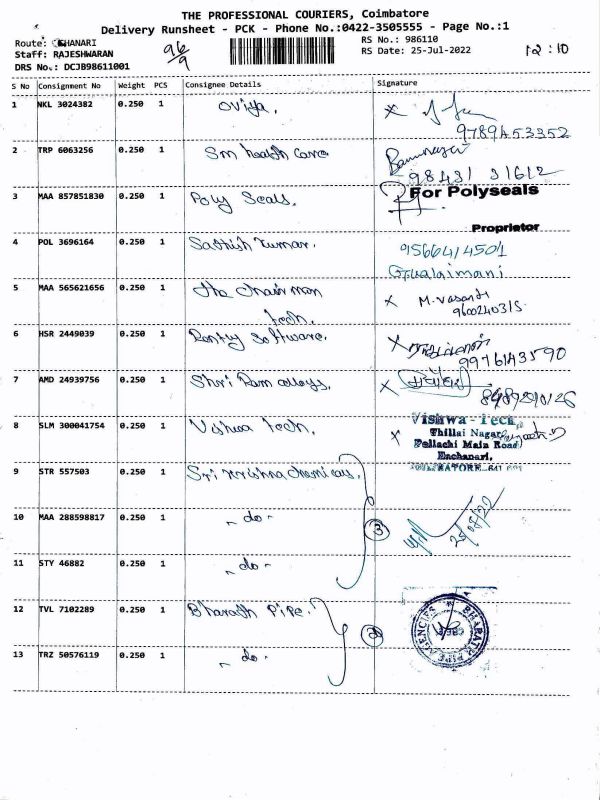 THE PROFESSIONAL COURIERS, Coimbatore
Delivery Runsheet - PCK - Phone No.:0422-3505555 - Page No.:1
Route: HANARI
RS No.: 986110
Staff: RAJESHWARAN
RS Date: 25-Jul-2022
12:10
96/9
DRS No.: DCJB98611001
S No Consignment No Weight PCS Consignee Details Signature
1 NKL 3024382 0.250 1 oviya.
9789453352
2 TRP 6063256 0.250 1 Sm health Care
98431 31612
3 MAA 857851830 0.250 1 Poly Seals.
For Polyseals
Proprietor
4 POL 3696164 0.250 1 Sathish Kumar.
9566414501
5 MAA 565621656 0.250 1 the Chairman
tech.
M. Vasanth
9600240315
6 HSR 2449039 0.250 1 Software.
9976143590
7 AMD 24939756 0.250 1 Shri Ram alloys.
8 SLM 300041754 0.250 1 Vishwa Tech.
Vishwa - Teck
Thillai Nagar
Pollachi Main Road
Eachanari,
9 STR 557503 0.250 1 Sri Krishna chemicals.
10 MAA 288598817 0.250 1 - do -
3
11 STY 46882 0.250 1 - do -
12 TVL 7102289 0.250 1 Bharath Pipe.
2
BHARATH PIPE AGENCIES
13 TRZ 50576119 0.250 1 - do -